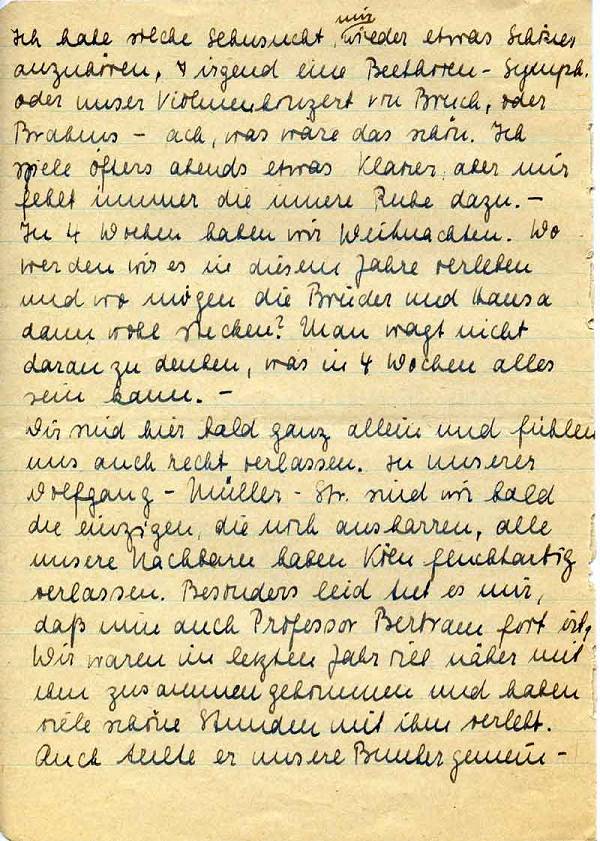 mir
Ich habe solche Sehnsucht, wieder etwas Schönes
anzuhören, irgend eine Beethoven - Symph.
oder unser Violinenkonzert von Bruch, oder
Brahms – ach, was wäre das schön. Ich
spiele öfters abends etwas Klavier, aber mir
fehlt immer die innere Ruhe dazu. –
In 4 Wochen haben wir Weihnachten. Wo
werden wir es in diesem Jahre verleben
und wo mögen die Brüder und Hansa
dann wohl stecken? Man wagt nicht
daran zu denken, was in 4 Wochen alles
sein kann. –
Wir sind hier bald ganz allein und fühlen
uns auch recht verlassen. In unserer
Wolfgang - Müller - Str. sind wir bald
die einzigen, die noch ausharren, alle
unsere Nachbarn haben Köln fluchtartig
verlassen. Besonders leid tut es mir,
daß nun auch Professor Bertram fort ist.
Wir waren im letzten Jahr viel näher mit
ihm zusammengekommen und haben
viele schöne Stunden mit ihm verlebt.
Auch teilte er unsere Bunkergemein-